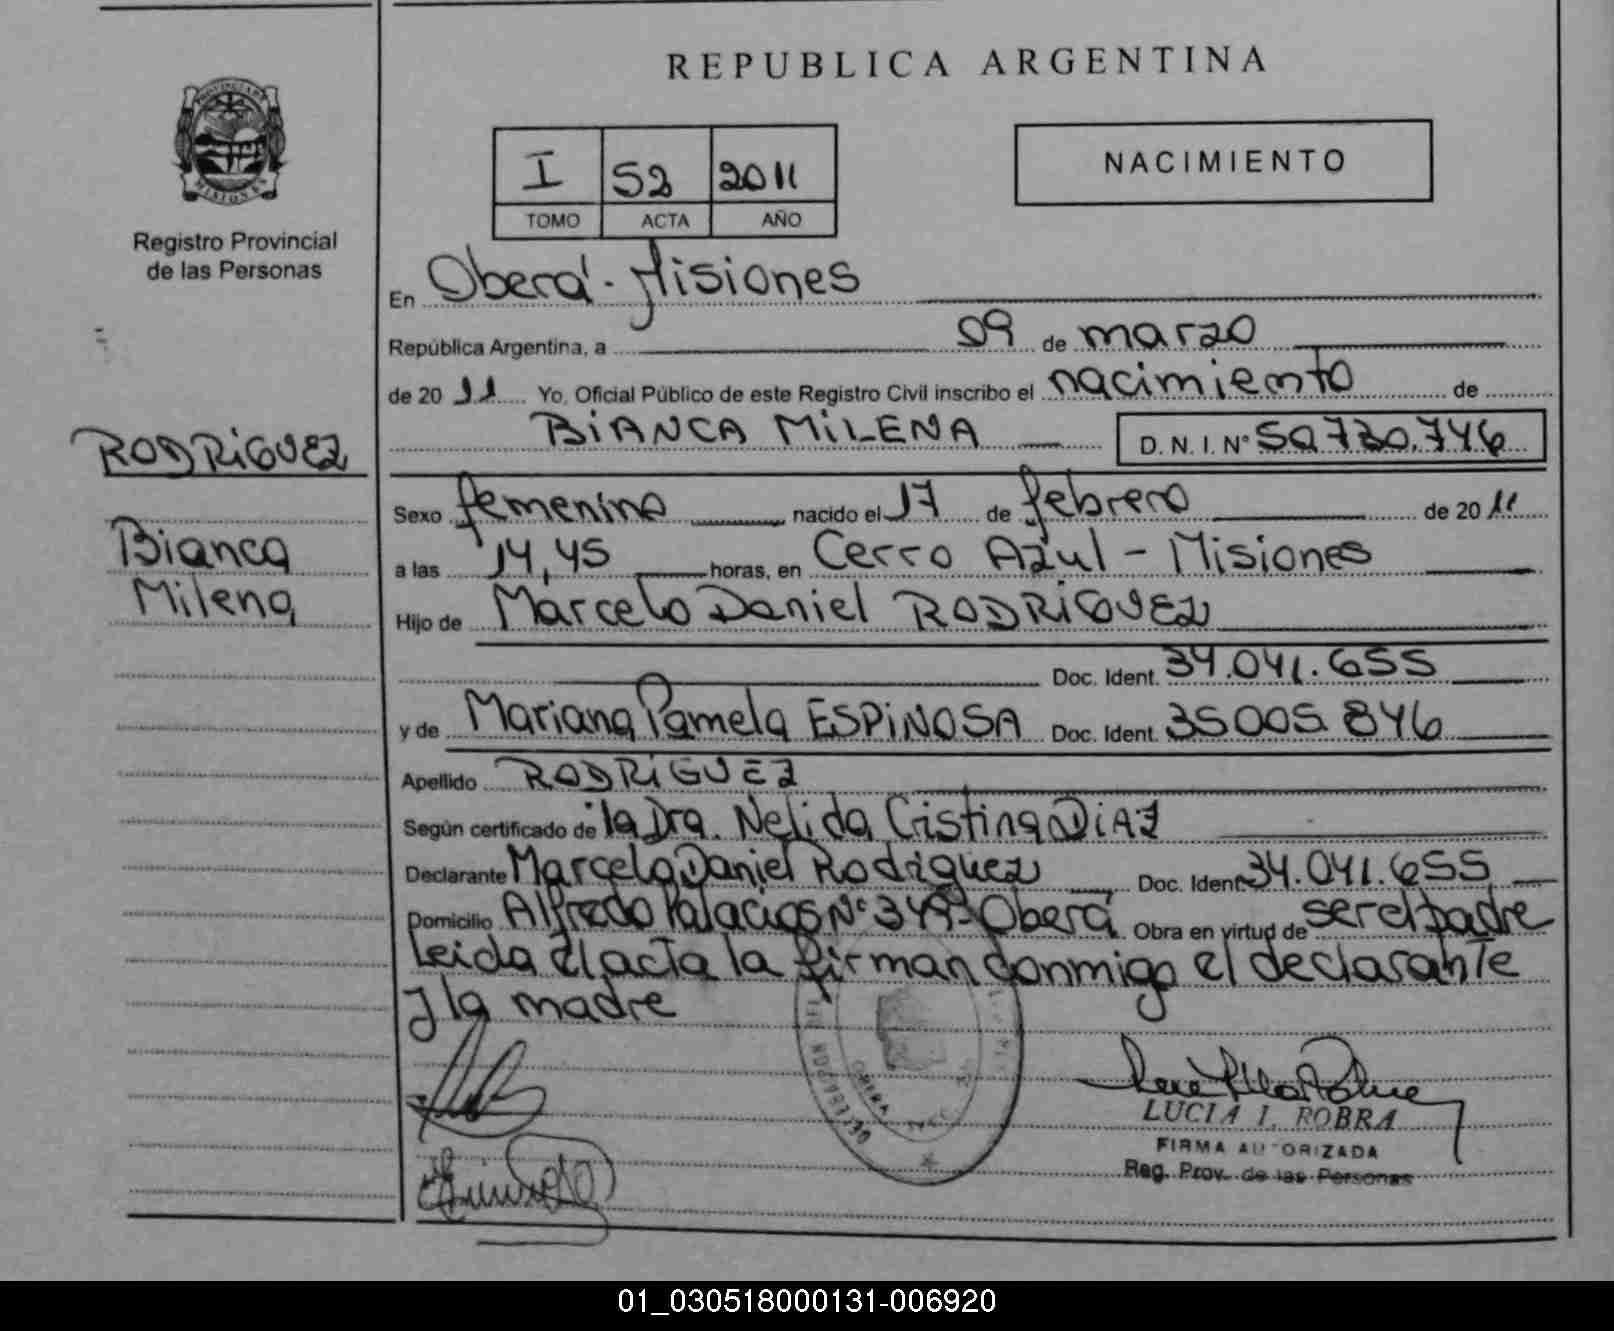 REPUBLICA ARGENTINA
PROVINCIA DE
MISIONES
Registro Provincial
de las Personas
I 52 2011
TOMO ACTA AÑO
NACIMIENTO
En Oberá - Misiones
República Argentina, a 09 de marzo
de 20 11 Yo, Oficial Público de este Registro Civil inscribo el nacimiento de
BiANCA MiLENA D. N. I. N° 50.730.746
RODRiGUEZ
Bianca
Milena
Sexo femenino nacido el 17 de febrero de 20 11
a las 14,45 horas, en Cerro Azul - Misiones
Hijo de Marcelo Daniel RODRiGUEZ
Doc. Ident. 34.041.655
y de Mariana Pamela ESPiNOSA Doc. Ident. 35005.846
Apellido RODRiGUEZ
Según certificado de la Dra. Nelida Cristina DiAZ
Declarante Marcelo Daniel Rodriguez Doc. Ident 34.041.655
Domicilio Alfredo Palacios N° Oberá. Obra en virtud de ser el padre
Leida el acta la firman conmigo el declarante
y la madre
DELEGACION
OBERA
LUCIA I. ROBRA
FIRMA AUTORIZADA
Reg. Prov. de las Personas
01_030518000131-006920